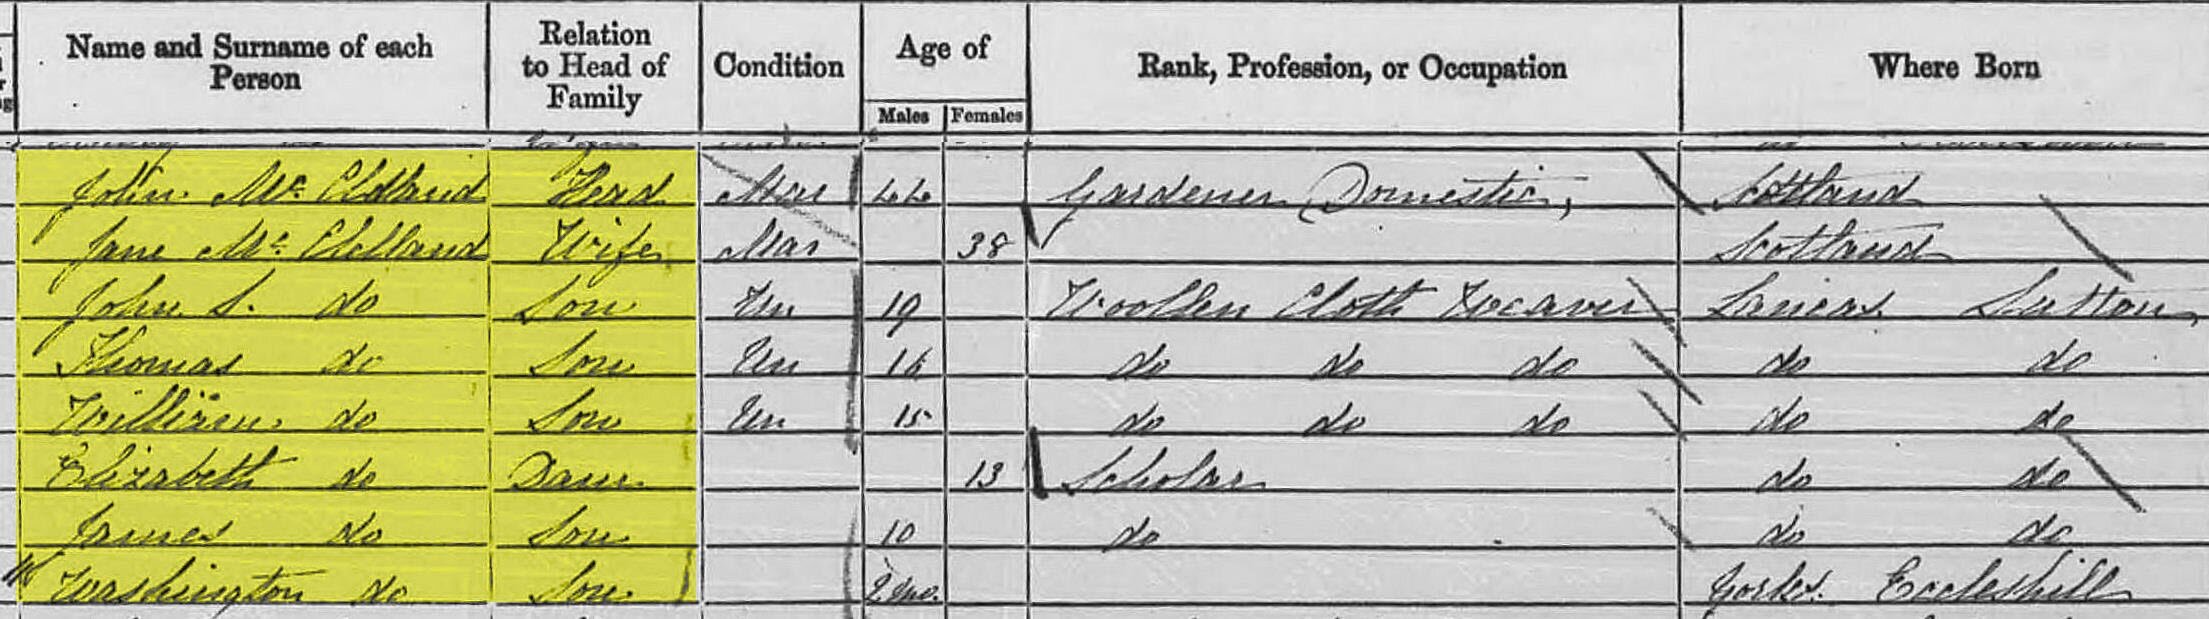 Name and Surname of each Person | Relation to Head of Family | Condition | Age of | Rank, Profession, or Occupation | Where Born
Males | Females
John Mc Clelland Head Mar 44 Gardener (Domestic) Scotland
Jane Mc Clelland Wife Mar 38 Scotland
John S. do Son Un 19 Woollen Cloth Weaver Lancas. Sutton
Thomas do Son Un 16 do do do do do
William do Son Un 15 do do do do do
Elizabeth do Daur 13 Scholar do do
James do Son 10 do do do
Washington do Son 2 mo. Yorks. Eccleshill